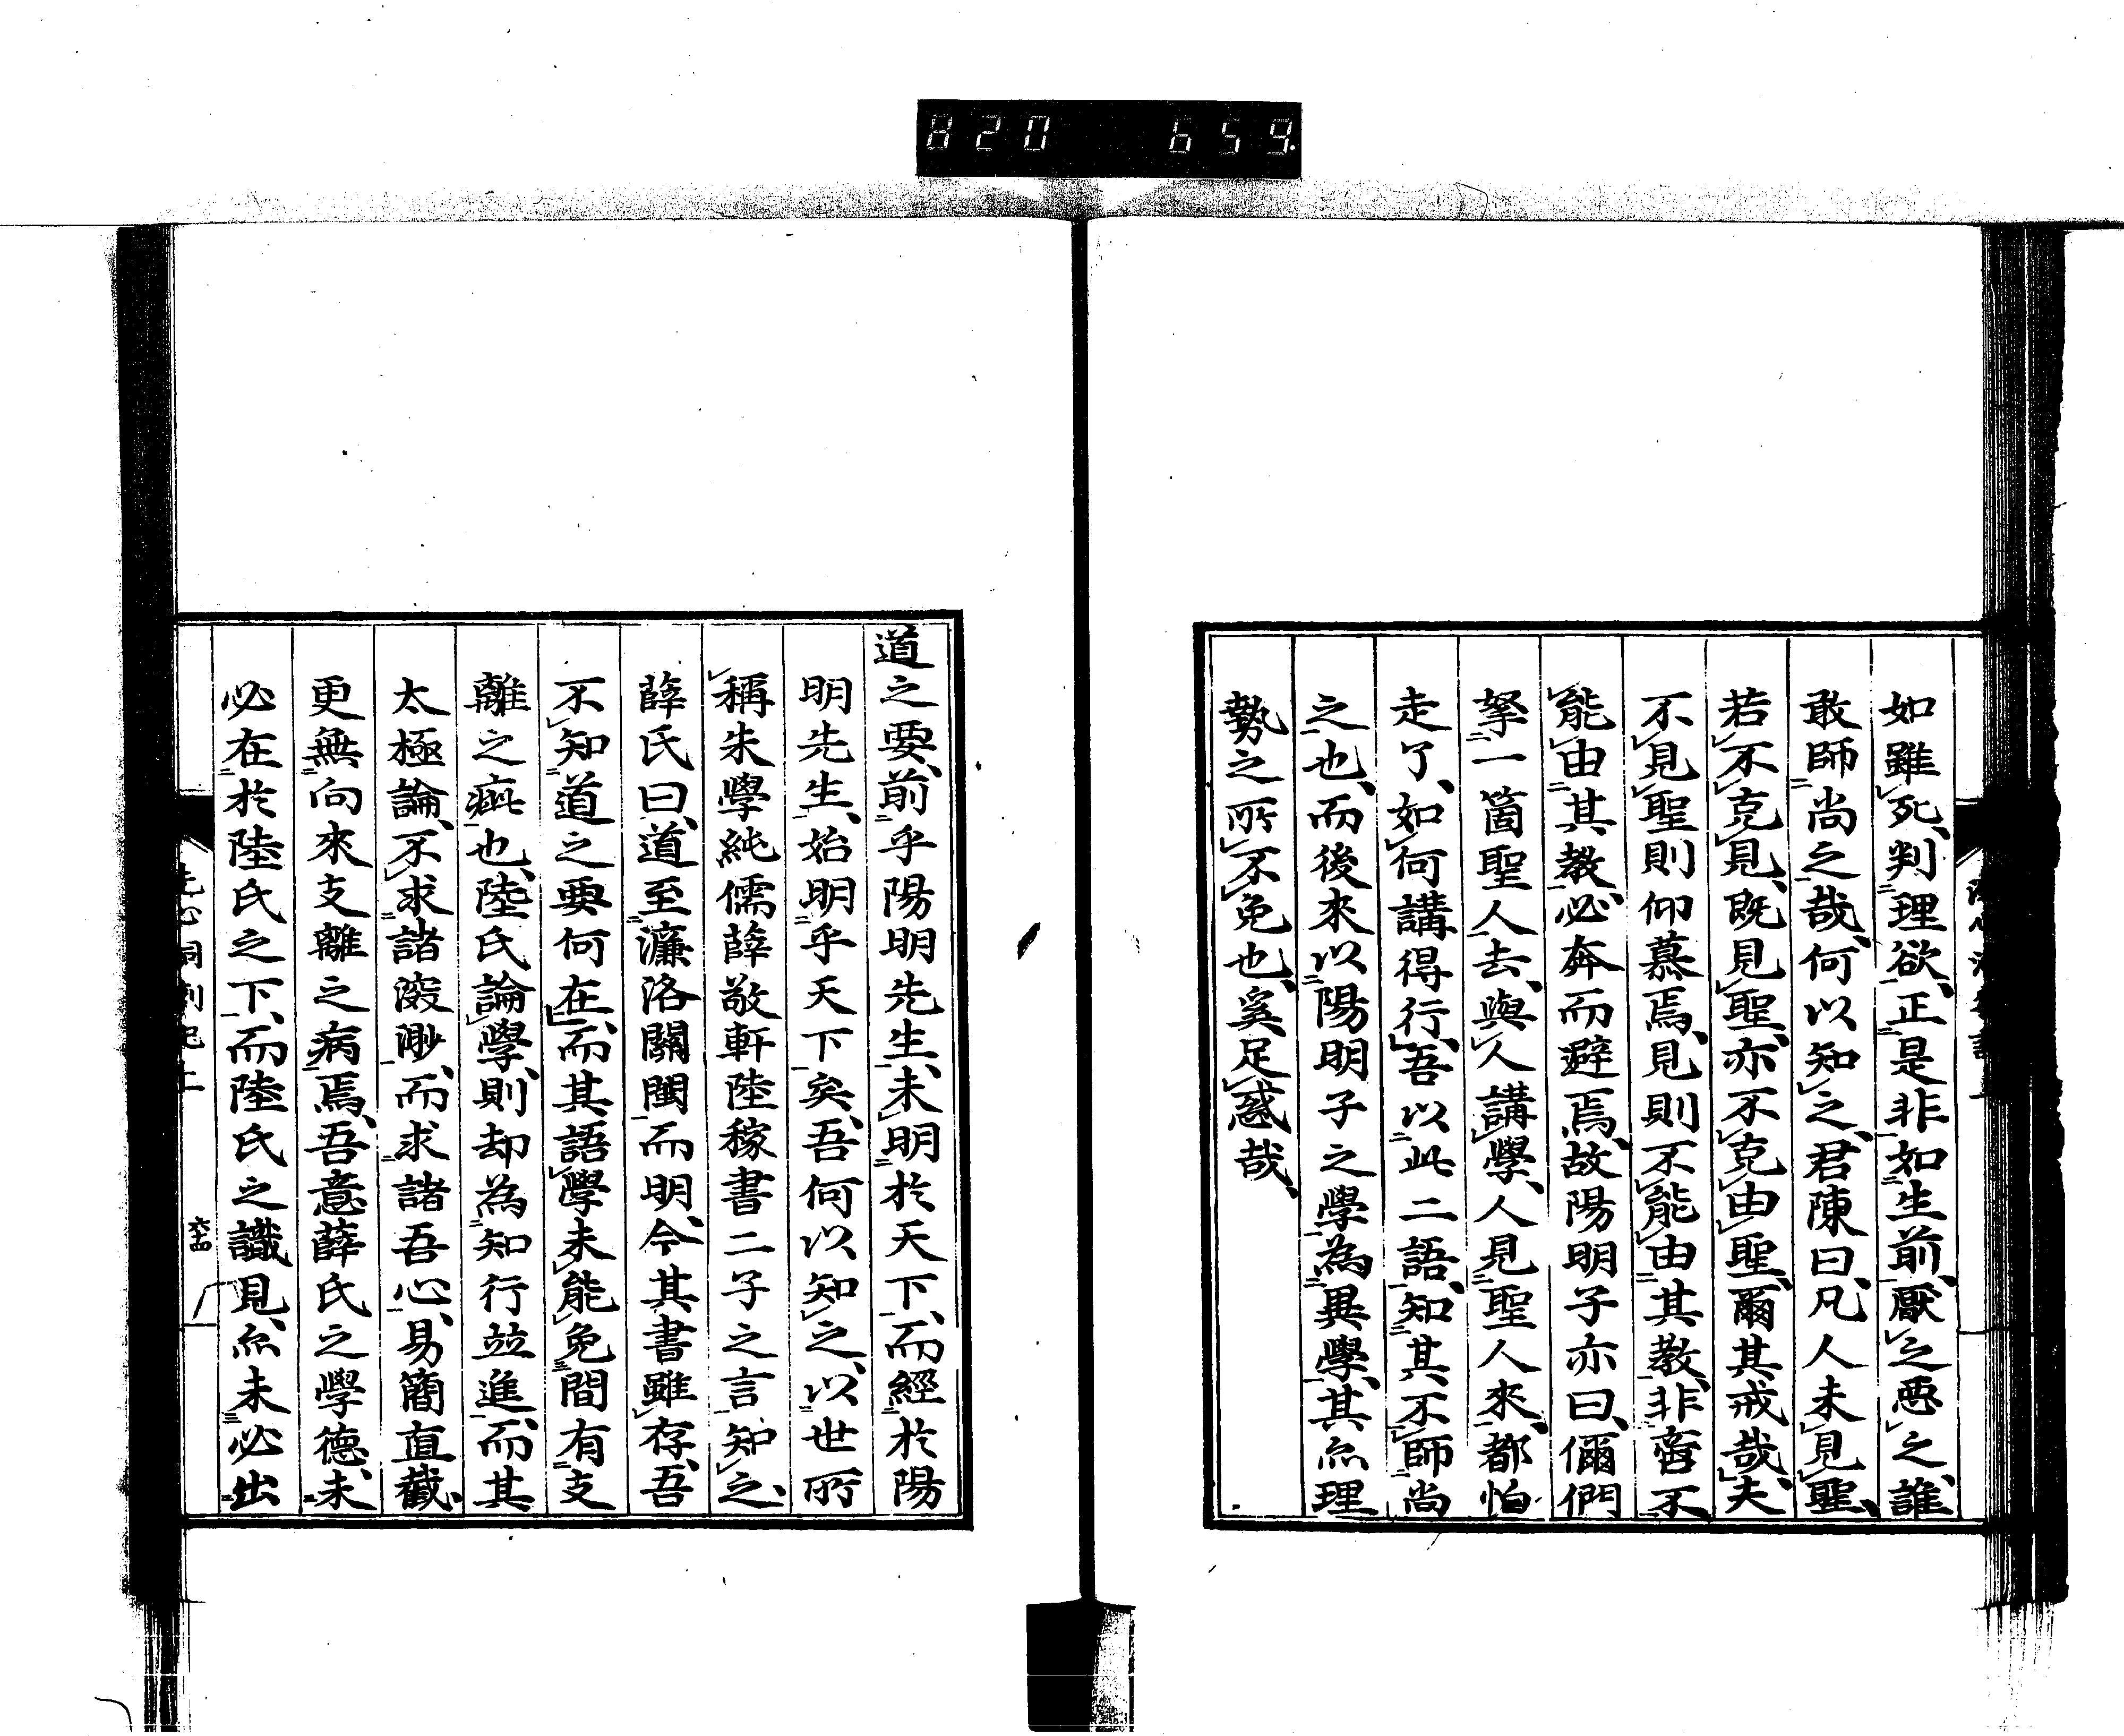 820 659.
如雖死、判理欲、正是非如生前、厭之惡之、誰
敢師尚之哉、何以知之、君陳曰、凡人未見聖、
若不克見、既見聖、亦不克由聖、爾其戒哉、夫
不見聖則仰慕焉、見則不能由其教、非啻不
能由其教、必奔而避焉、故陽明子亦曰、儞們
拏一箇聖人去、與人講學、人見聖人來、都怕
走了、如何講得行、吾以此二語、知其不師尚
之也、而後來以陽明子之學為異學、其亦理
勢之所不免也、奚足惑哉、
道之要、前乎陽明先生、未明於天下、而經於陽
明先生、始明乎天下矣、吾何以知之、以世所
稱朱學純儒薛敬軒陸稼書二子之言知之、
薛氏曰、道至濂洛關閩而明、今其書雖存、吾
不知道之要何在、而其語學未能免間有支
離之疵也、陸氏論學、則却為知行並進、而其
太極論、不求諸深渺、而求諸吾心、易簡直截、
更無向來支離之病焉、吾意薛氏之學德、未
必在於陸氏之下、而陸氏之識見、亦未必出
洗心洞劄記上
六十四